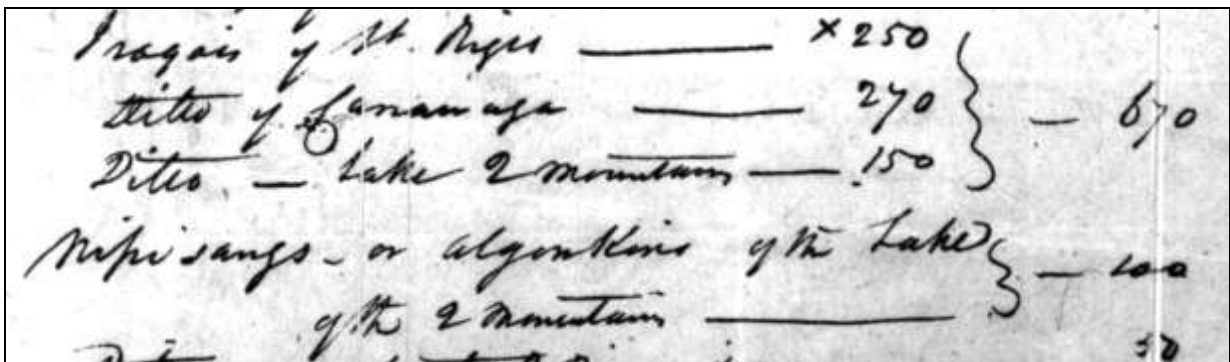 Iroqois of St. Regis —— × 250
ditto of Canawaga —— 270 } — 670
Ditto — Lake 2 mountains —— 150
Nipisangs - or algonkins of the Lake } — 100
of the 2 mountains ——
50